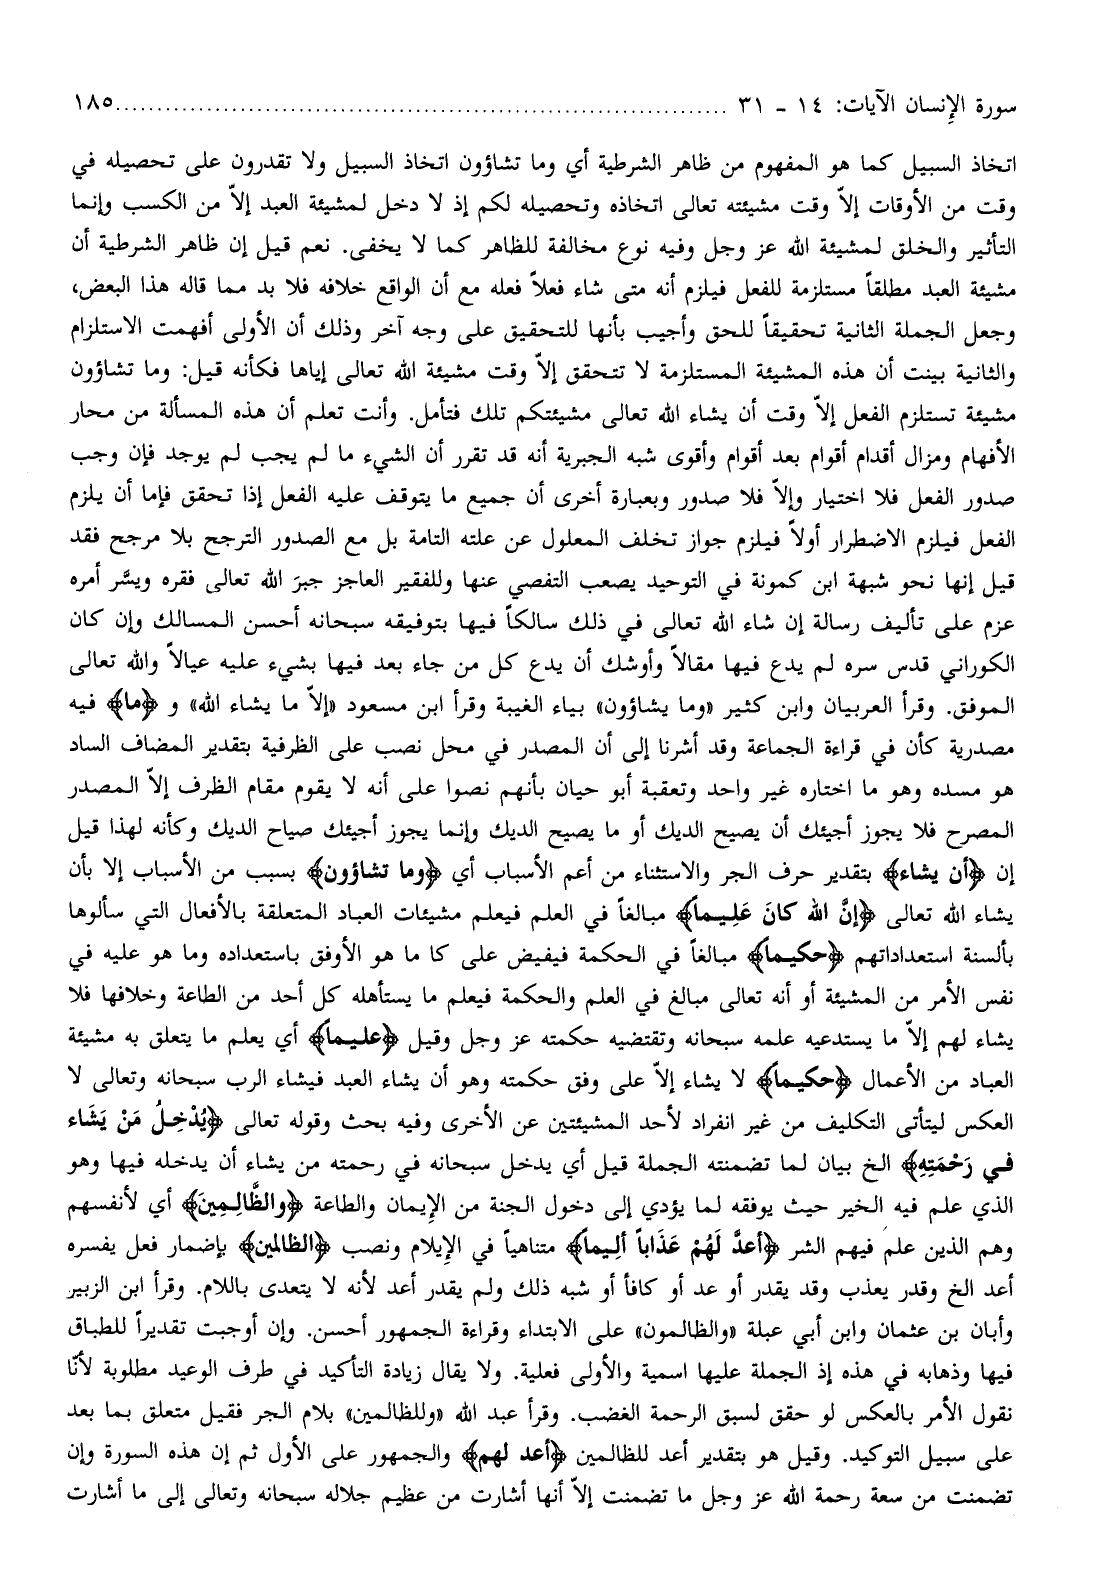 سورة الإنسان الآيات: ١٤ - ٣١ ........................................................................... ١٨٥
اتخاذ السبيل كما هو المفهوم من ظاهر الشرطية أي وما تشاؤون اتخاذ السبيل ولا تقدرون على تحصيله في
وقت من الأوقات إلاّ وقت مشيئته تعالى اتخاذه وتحصيله لكم إذ لا دخل لمشيئة العبد إلاّ من الكسب وإنما
التأثير والخلق لمشيئة الله عز وجل وفيه نوع مخالفة للظاهر كما لا يخفى. نعم قيل إن ظاهر الشرطية أن
مشيئة العبد مطلقاً مستلزمة للفعل فيلزم أنه متى شاء فعلاً فعله مع أن الواقع خلافه فلا بد مما قاله هذا البعض،
وجعل الجملة الثانية تحقيقاً للحق وأجيب بأنها للتحقيق على وجه آخر وذلك أن الأولى أفهمت الاستلزام
والثانية بينت أن هذه المشيئة المستلزمة لا تتحقق إلاّ وقت مشيئة الله تعالى إياها فكأنه قيل: وما تشاؤون
مشيئة تستلزم الفعل إلاّ وقت أن يشاء الله تعالى مشيئتكم تلك فتأمل. وأنت تعلم أن هذه المسألة من محار
الأفهام ومزال أقدام أقوام بعد أقوام وأقوى شبه الجبرية أنه قد تقرر أن الشيء ما لم يجب لم يوجد فإن وجب
صدور الفعل فلا اختيار وإلاّ فلا صدور وبعبارة أخرى أن جميع ما يتوقف عليه الفعل إذا تحقق فإما أن يلزم
الفعل فيلزم الاضطرار أولاً فيلزم جواز تخلف المعلول عن علته التامة بل مع الصدور الترجح بلا مرجح فقد
قيل إنها نحو شبهة ابن كمونة في التوحيد يصعب التفصي عنها وللفقير العاجز جبرَ الله تعالى فقره ويسَّر أمره
عزم على تأليف رسالة إن شاء الله تعالى في ذلك سالكاً فيها بتوفيقه سبحانه أحسن المسالك وإن كان
الكوراني قدس سره لم يدع فيها مقالاً وأوشك أن يدع كل من جاء بعد فيها بشيء عليه عيالاً والله تعالى
الموفق. وقرأ العربيان وابن كثير «وما يشاؤون» بياء الغيبة وقرأ ابن مسعود «إلاّ ما يشاء الله» و ﴿ما﴾ فيه
مصدرية كأن في قراءة الجماعة وقد أشرنا إلى أن المصدر في محل نصب على الظرفية بتقدير المضاف الساد
هو مسده وهو ما اختاره غير واحد وتعقبة أبو حيان بأنهم نصوا على أنه لا يقوم مقام الظرف إلاّ المصدر
المصرح فلا يجوز أجيئك أن يصيح الديك أو ما يصيح الديك وإنما يجوز أجيئك صياح الديك وكأنه لهذا قيل
إن ﴿أن يشاء﴾ بتقدير حرف الجر والاستثناء من أعم الأسباب أي ﴿وما تشاؤون﴾ بسبب من الأسباب إلا بأن
يشاء الله تعالى ﴿إنَّ الله كانَ عَلِيماً﴾ مبالغاً في العلم فيعلم مشيئات العباد المتعلقة بالأفعال التي سألوها
بألسنة استعداداتهم ﴿حكيماً﴾ مبالغاً في الحكمة فيفيض على كا ما هو الأوفق باستعداده وما هو عليه في
نفس الأمر من المشيئة أو أنه تعالى مبالغ في العلم والحكمة فيعلم ما يستأهله كل أحد من الطاعة وخلافها فلا
يشاء لهم إلاّ ما يستدعيه علمه سبحانه وتقتضيه حكمته عز وجل وقيل ﴿عليماً﴾ أي يعلم ما يتعلق به مشيئة
العباد من الأعمال ﴿حكيماً﴾ لا يشاء إلاّ على وفق حكمته وهو أن يشاء العبد فيشاء الرب سبحانه وتعالى لا
العكس ليتأتى التكليف من غير انفراد لأحد المشيئتين عن الأخرى وفيه بحث وقوله تعالى ﴿يُدْخِلُ مَنْ يَشَاء
في رَحْمَتِهِ﴾ الخ بيان لما تضمنته الجملة قيل أي يدخل سبحانه في رحمته من يشاء أن يدخله فيها وهو
الذي علم فيه الخير حيث يوفقه لما يؤدي إلى دخول الجنة من الإيمان والطاعة ﴿والظَّالِمِينَ﴾ أي لأنفسهم
وهم الذين علم فيهم الشر ﴿أعدَّ لَهُمْ عَذَاباً أليماً﴾ متناهياً في الإيلام ونصب ﴿الظالمين﴾ بإضمار فعل يفسره
أعد الخ وقدر يعذب وقد يقدر أو عد أو كافأ أو شبه ذلك ولم يقدر أعد لأنه لا يتعدى باللام. وقرأ ابن الزبير
وأبان بن عثمان وابن أبي عبلة «والظالمون» على الابتداء وقراءة الجمهور أحسن. وإن أوجبت تقديراً للطباق
فيها وذهابه في هذه إذ الجملة عليها اسمية والأولى فعلية. ولا يقال زيادة التأكيد في طرف الوعيد مطلوبة لأنّا
نقول الأمر بالعكس لو حقق لسبق الرحمة الغضب. وقرأ عبد الله «وللظالمين» بلام الجر فقيل متعلق بما بعد
على سبيل التوكيد. وقيل هو بتقدير أعد للظالمين ﴿أعد لهم﴾ والجمهور على الأول ثم إن هذه السورة وإن
تضمنت من سعة رحمة الله عز وجل ما تضمنت إلاّ أنها أشارت من عظيم جلاله سبحانه وتعالى إلى ما أشارت